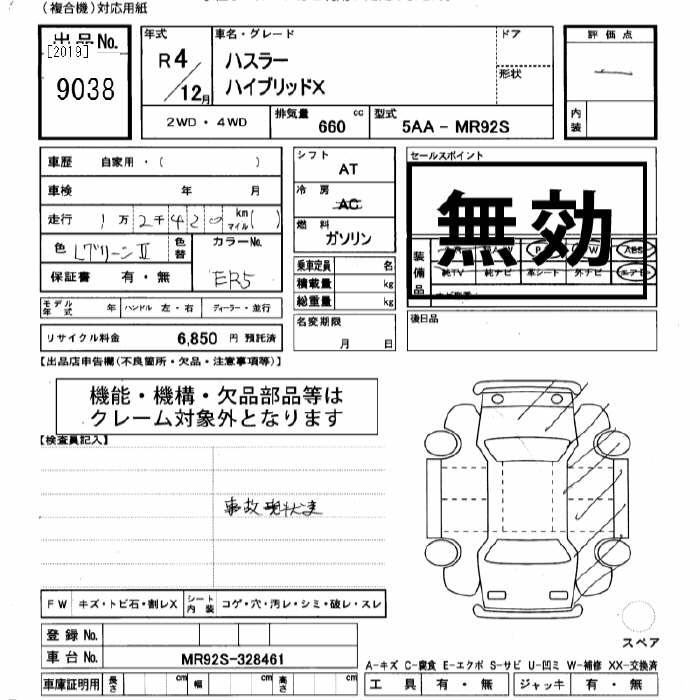 （複合機）対応用紙
出品No.
[2019]
9038
年式
R4/12月
車名・グレード
ハスラー
ハイブリッドX
ドア
形状
評価点
内装
2WD・4WD
排気量 660 cc
型式 5AA－MR92S
車歴 自家用・（ ）
車検 年 月
走行 1万2千420 km マイル（ ）
色 LグリーンⅡ
色替
カラーNo.
ER5
保証書 有・無
モデル年式 年 ハンドル 左・右 ディーラー・並行
リサイクル料金 6,850 円 預託済
シフト AT
冷房 AC
燃料 ガソリン
乗車定員 名
積載量 kg
総重量 kg
名変期限
月 日
セールスポイント
無効
装備品
ABS
純TV 純ナビ 革シート 外ナビ エアB
後日品
【出品店申告欄（不良箇所・欠品・注意事項等）】
機能・機構・欠品部品等は
クレーム対象外となります
【検査員記入】
事故現状車
FW キズ・トビ石・割レX シート内装 コゲ・穴・汚レ・シミ・破レ・スレ
登録No.
車台No. MR92S-328461
車庫証明用 長さ cm 幅 cm 高さ cm
スペア
A-キズ C-腐食 E-エクボ S-サビ U-凹ミ W-補修 XX-交換済
工具 有・無 ジャッキ 有・無